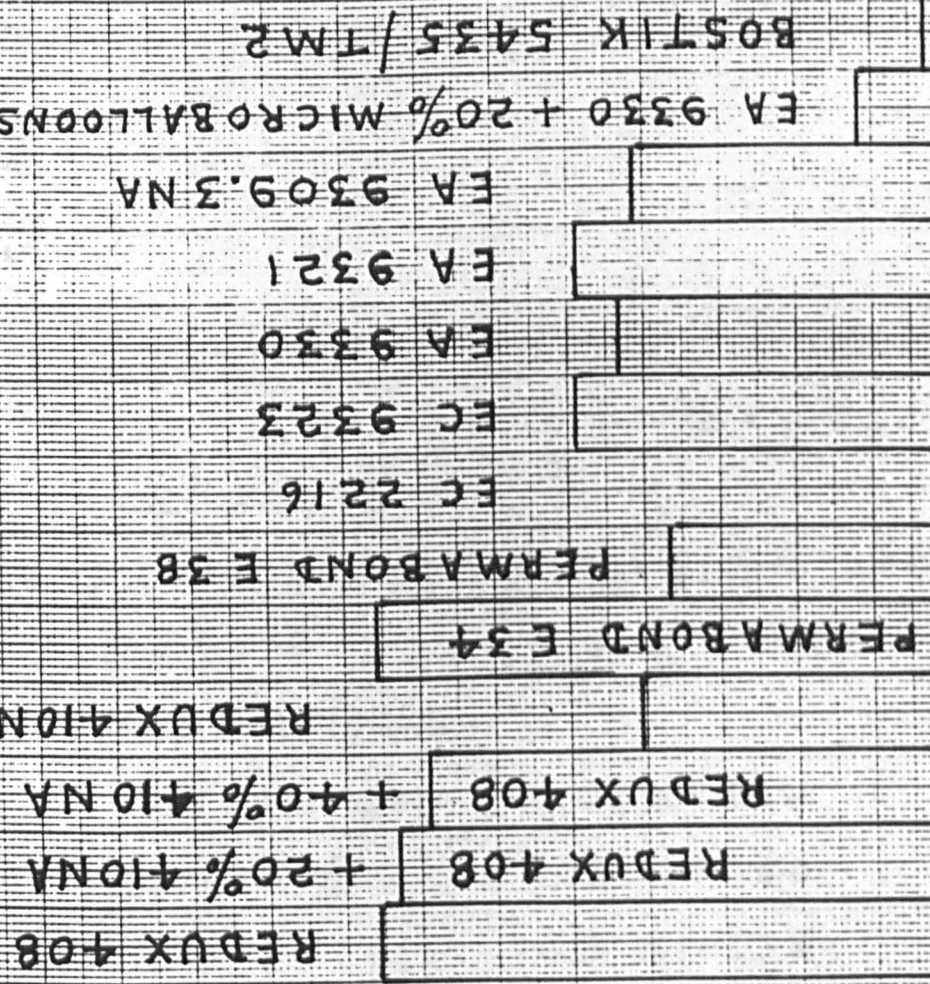 REDUX 408
REDUX 408 + 20% 410NA
REDUX 408 + 40% 410 NA
REDUX 410N
PERMABOND E34
PERMABOND E 38
EC 2216
EC 9323
EA 9330
EA 9321
EA 9309.3NA
EA 9330 + 20% MICROBALLOONS
BOSTIK 5435/TM2